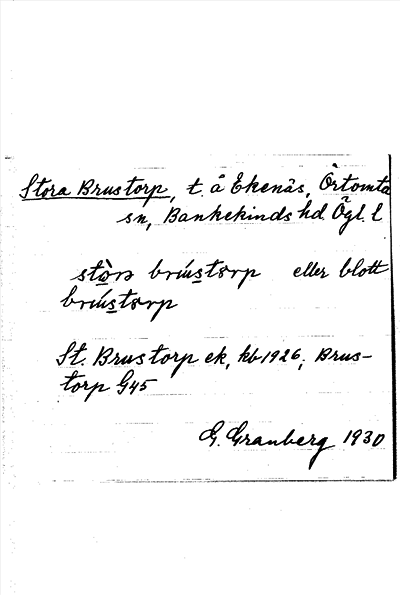 Stora Brustorp, t. å Ekenäs, Örtomta
sn, Bankekinds hd. Ögl. l
stòrə brústorp eller blott
brústorp
St. Brustorp ek, kb 1926; Brus-
torp G45
G. Granberg 1930